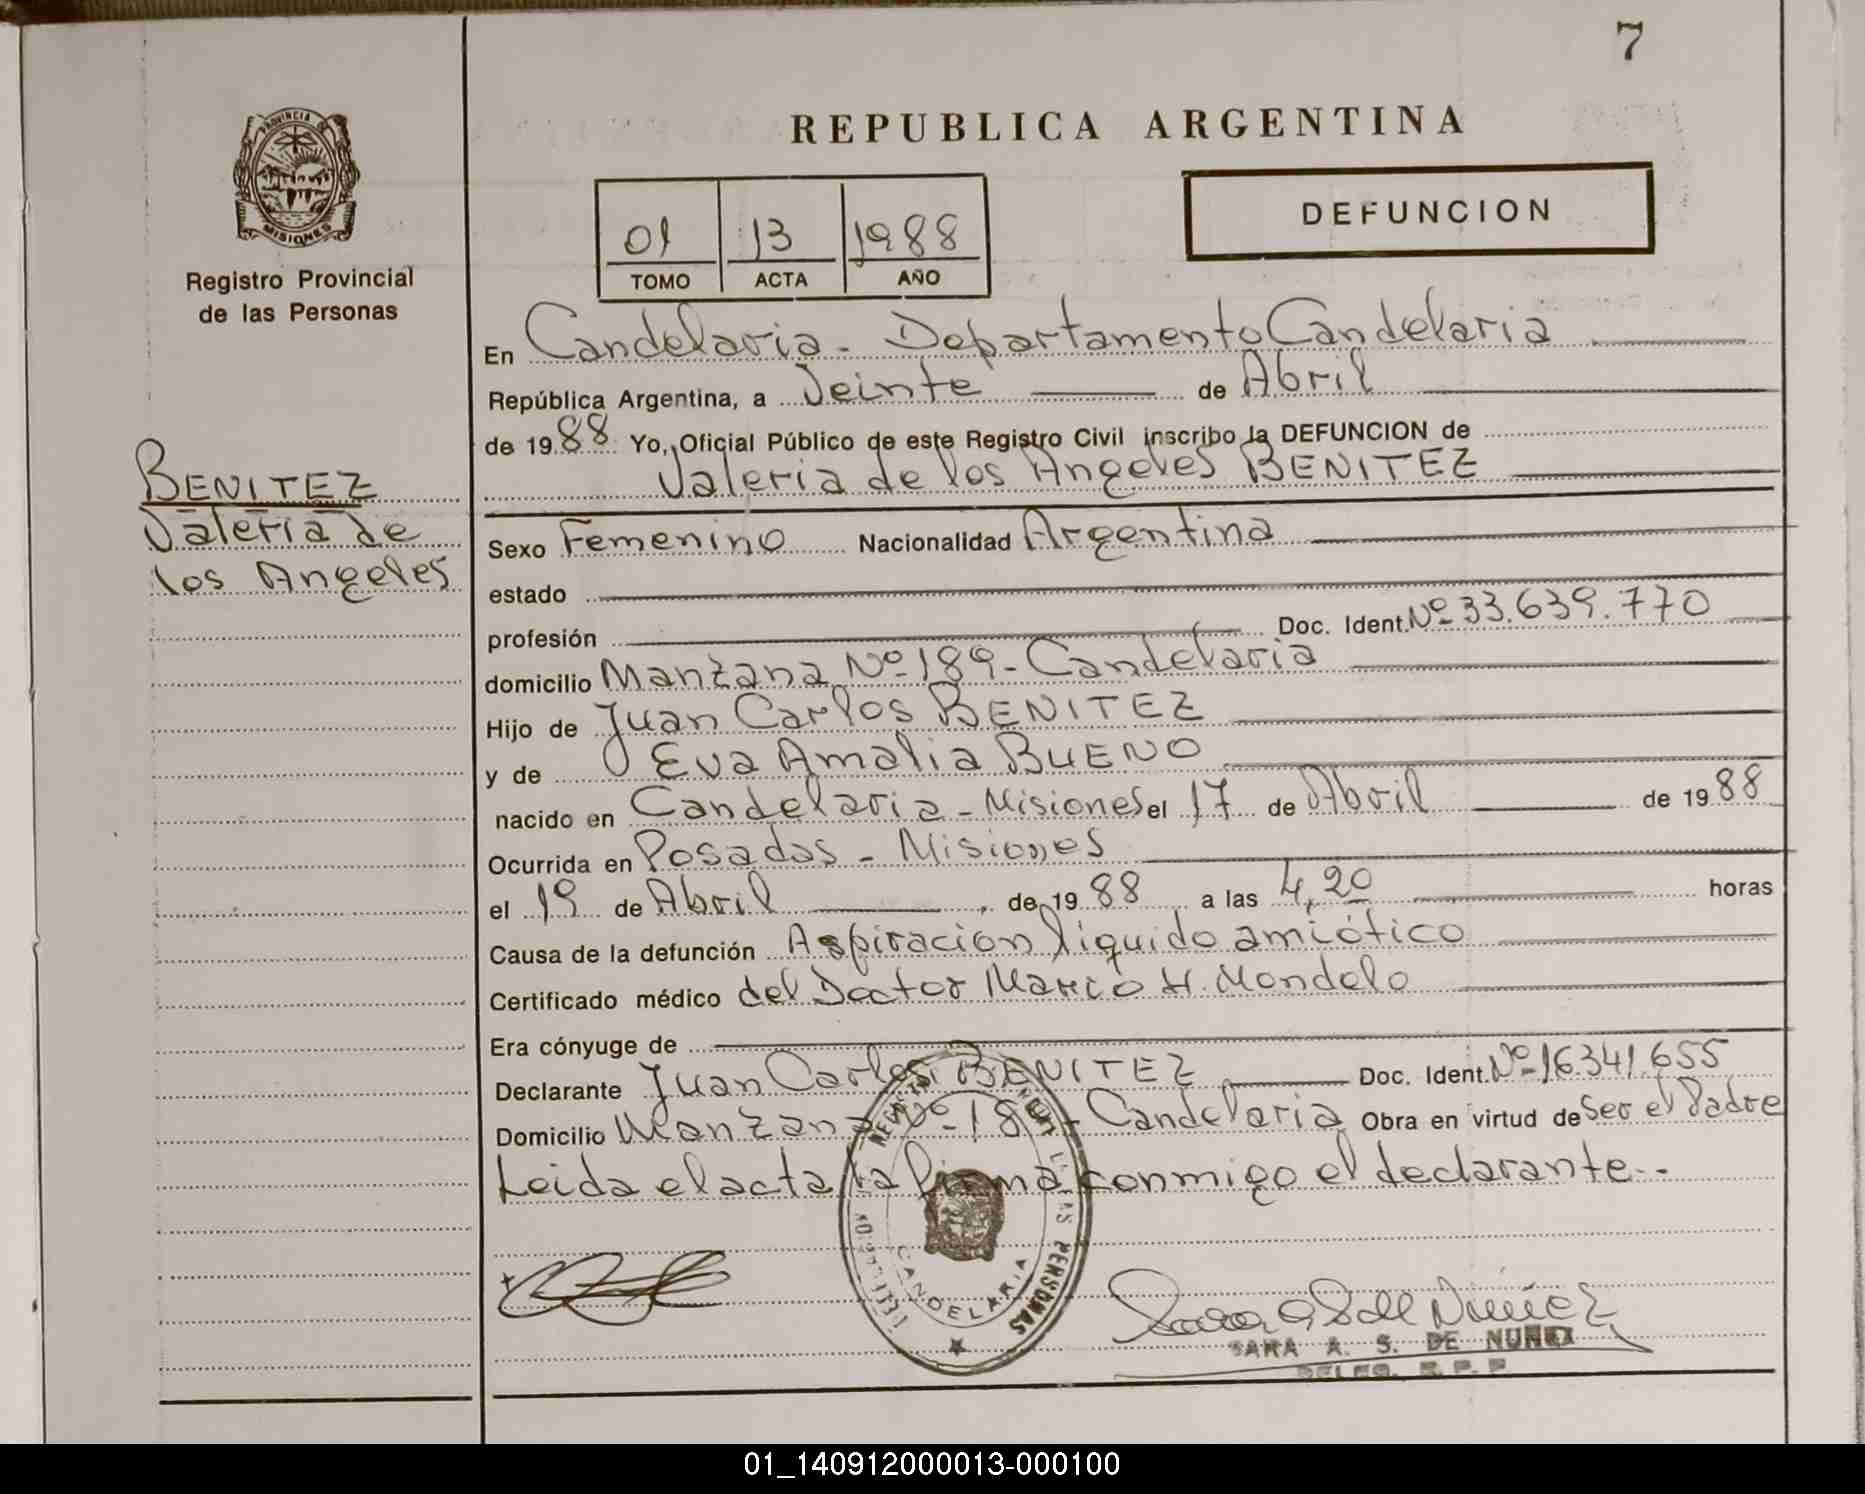 7
PROVINCIA DE
MISIONES
Registro Provincial
de las Personas
REPUBLICA ARGENTINA
01 13 1988
TOMO ACTA AÑO
DEFUNCION
BENITEZ
Valeria de
los Angeles
En Candelaria - Departamento Candelaria
República Argentina, a Veinte de Abril
de 1988 Yo, Oficial Público de este Registro Civil inscribo la DEFUNCION de
Valeria de los Angeles BENITEZ
Sexo Femenino Nacionalidad Argentina
estado
profesión Doc. Ident. Nº 33.639.770
domicilio Manzana Nº 189 - Candelaria
Hijo de Juan Carlos BENITEZ
y de Eva Amalia BUENO
nacido en Candelaria - Misiones el 17 de Abril de 1988
Ocurrida en Posadas - Misiones
el 19 de Abril de 1988 a las 4,20 horas
Causa de la defunción Aspiracion líquido amiótico
Certificado médico del Doctor Mario H. Mondelo
Era cónyuge de
Declarante Juan Carlos BENITEZ Doc. Ident. Nº 16.341.655
Domicilio Manzana Nº 189 - Candelaria Obra en virtud de Ser el Padre
Leida el acta la firma conmigo el declarante.-
LAS PERSONAS
CANDELARIA
Sara A S de Nuñez
SARA A. S. DE NUÑEZ
DELEG. R. P. P.
01_140912000013-000100